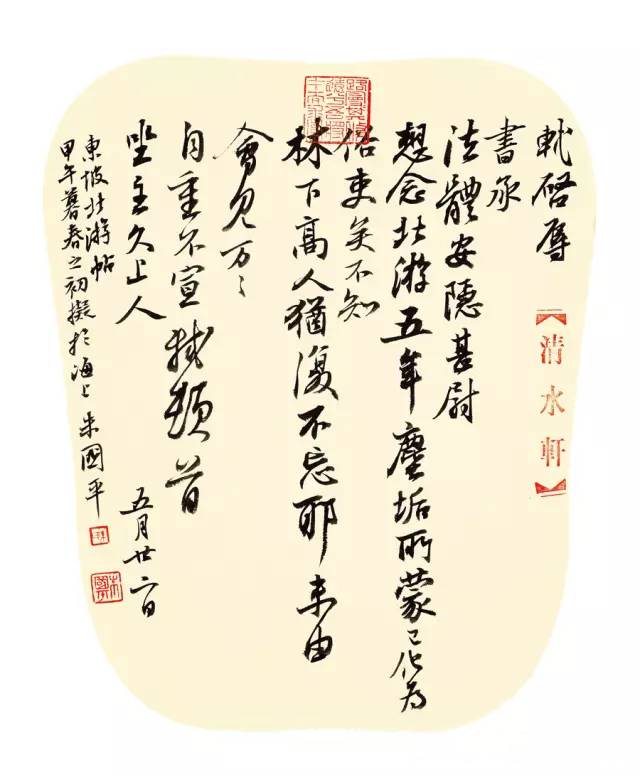 軾啓辱
書承
法體安隱甚尉
想念北游五年塵垢所蒙已化為
俗吏矣不知
林下高人猶復不忘耶未由
會見万〻
自重不宣軾頓首
坐主久上人
五月廿二日
東坡北游帖
甲午暮春之初擬於海上朱國平
【清水軒】